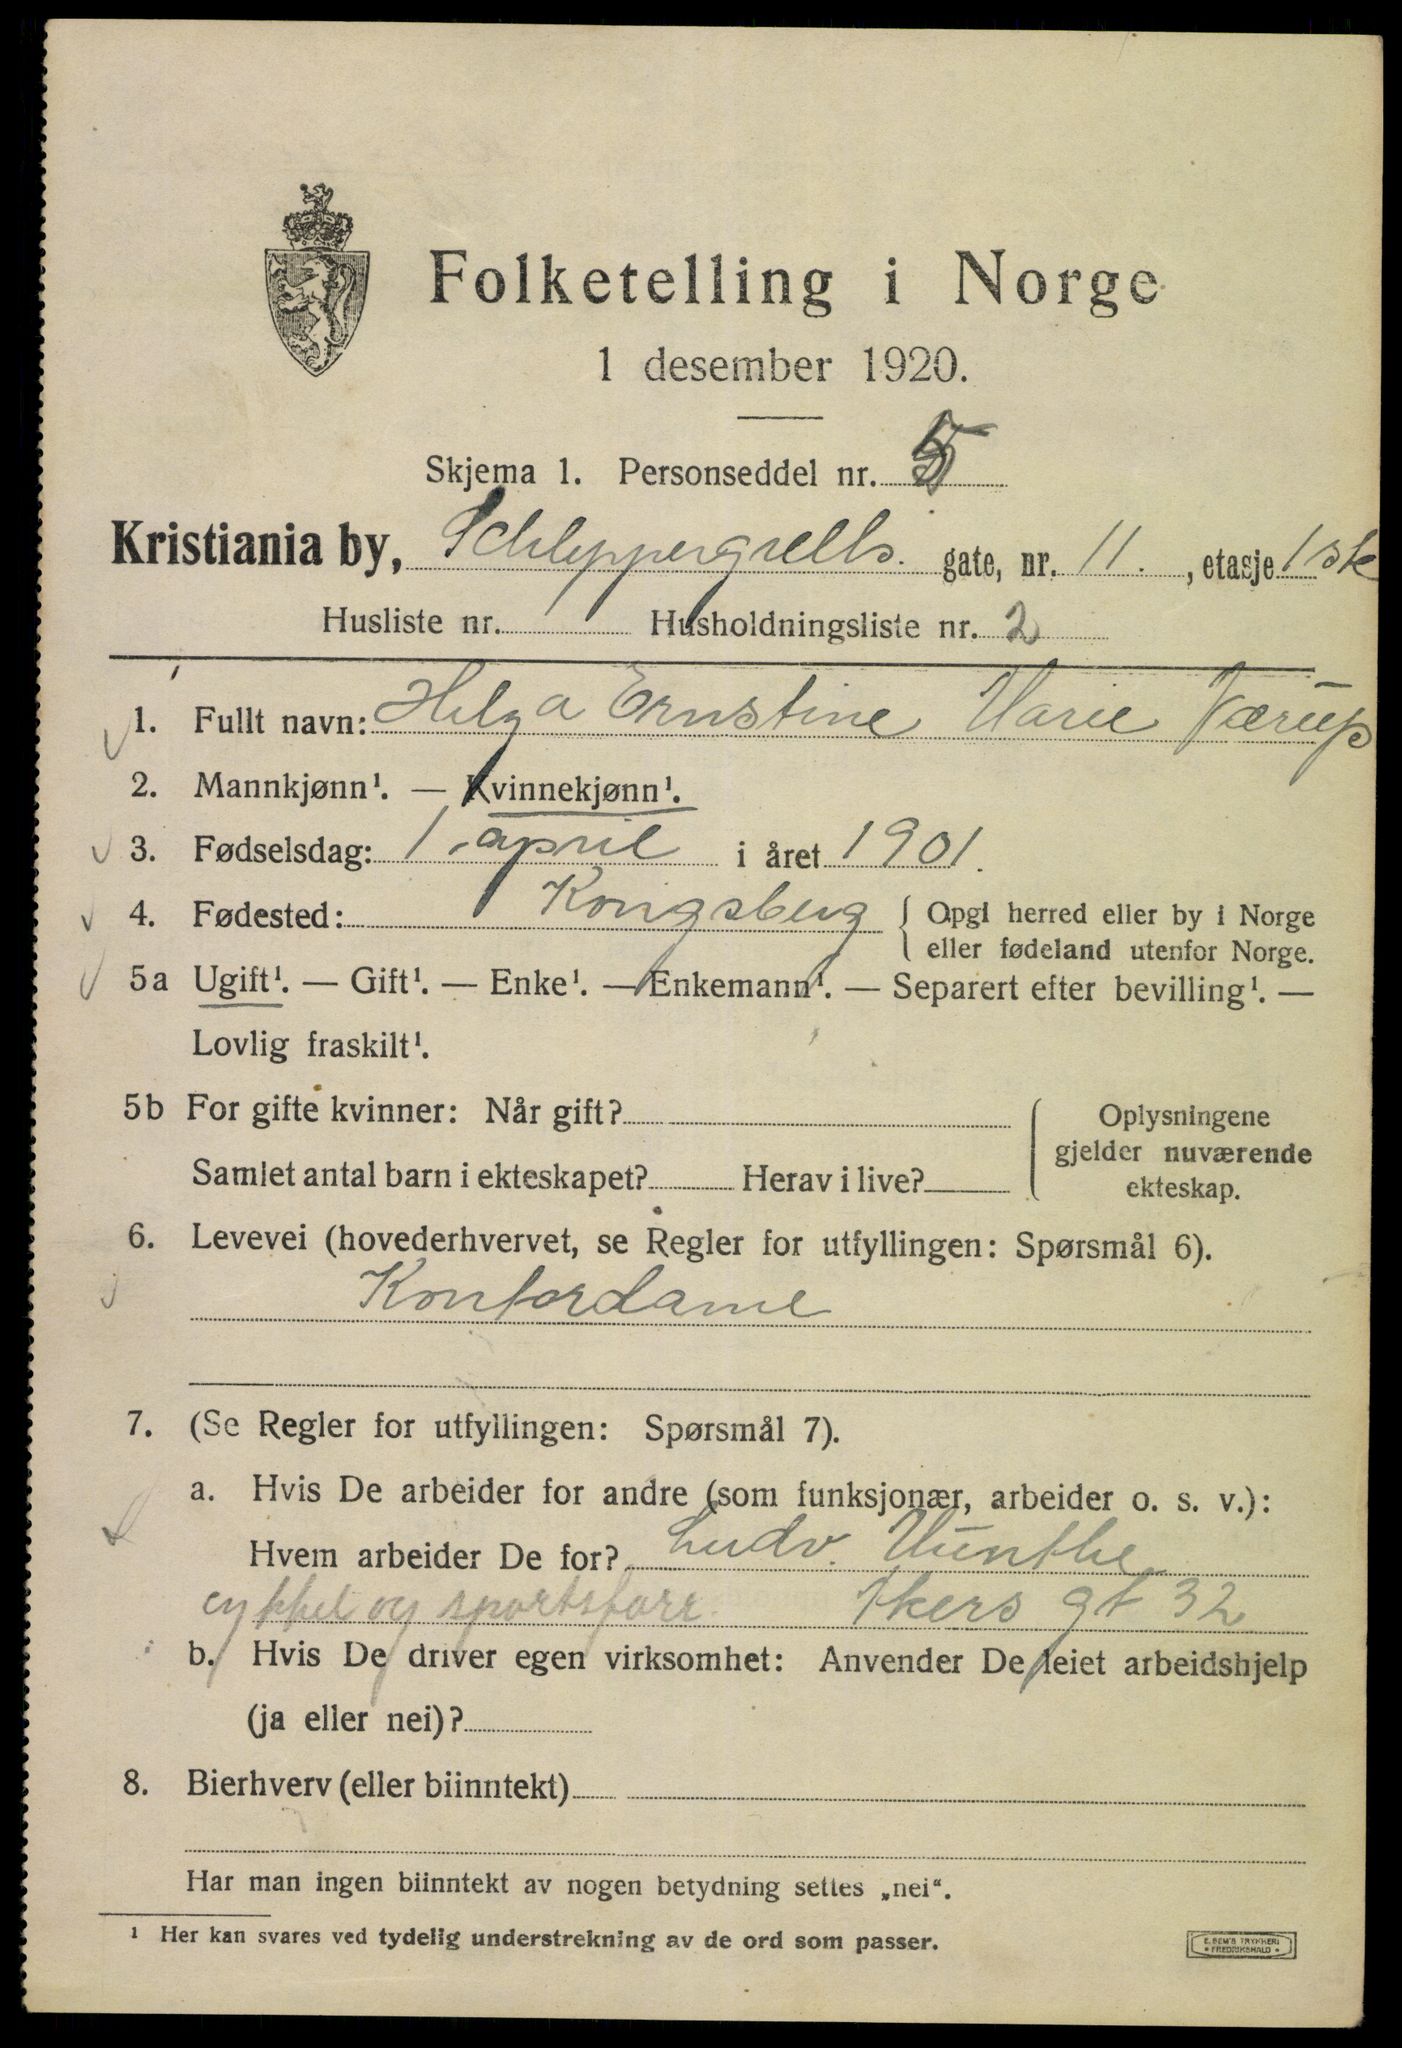 Folketelling i Norge
1 desember 1920.
Skjema 1. Personseddel nr. 5
Kristiania by, Schleppegrells. gate, nr. 11. , etasje 1 ste
Husliste nr. Husholdningsliste nr. 2
1. Fullt navn: Helga Ernstine Marie Værup
2. Mannkjønn¹. — Kvinnekjønn¹.
3. Fødselsdag: 1. april i året 1901.
4. Fødested: Kongsberg { Opgi herred eller by i Norge
eller fødeland utenfor Norge.
5a Ugift¹. — Gift¹. — Enke¹. — Enkemann¹. — Separert efter bevilling¹. —
Lovlig fraskilt¹.
5b For gifte kvinner: Når gift?
Samlet antal barn i ekteskapet? Herav i live?
Oplysningene
gjelder nuværende
ekteskap.
6. Levevei (hovederhvervet, se Regler for utfyllingen: Spørsmål 6).
Kontordame
7. (Se Regler for utfyllingen: Spørsmål 7).
a. Hvis De arbeider for andre (som funksjonær, arbeider o. s. v.):
Hvem arbeider De for? Ludv. Munthe
cykkel og sportsforr. Akers gt 32
b. Hvis De driver egen virksomhet: Anvender De leiet arbeidshjelp
(ja eller nei)?
8. Bierhverv (eller biinntekt)
Har man ingen biinntekt av nogen betydning settes „nei“.
¹ Her kan svares ved tydelig understrekning av de ord som passer.
E. SEM'S TRYKKERI
FREDRIKSHALD